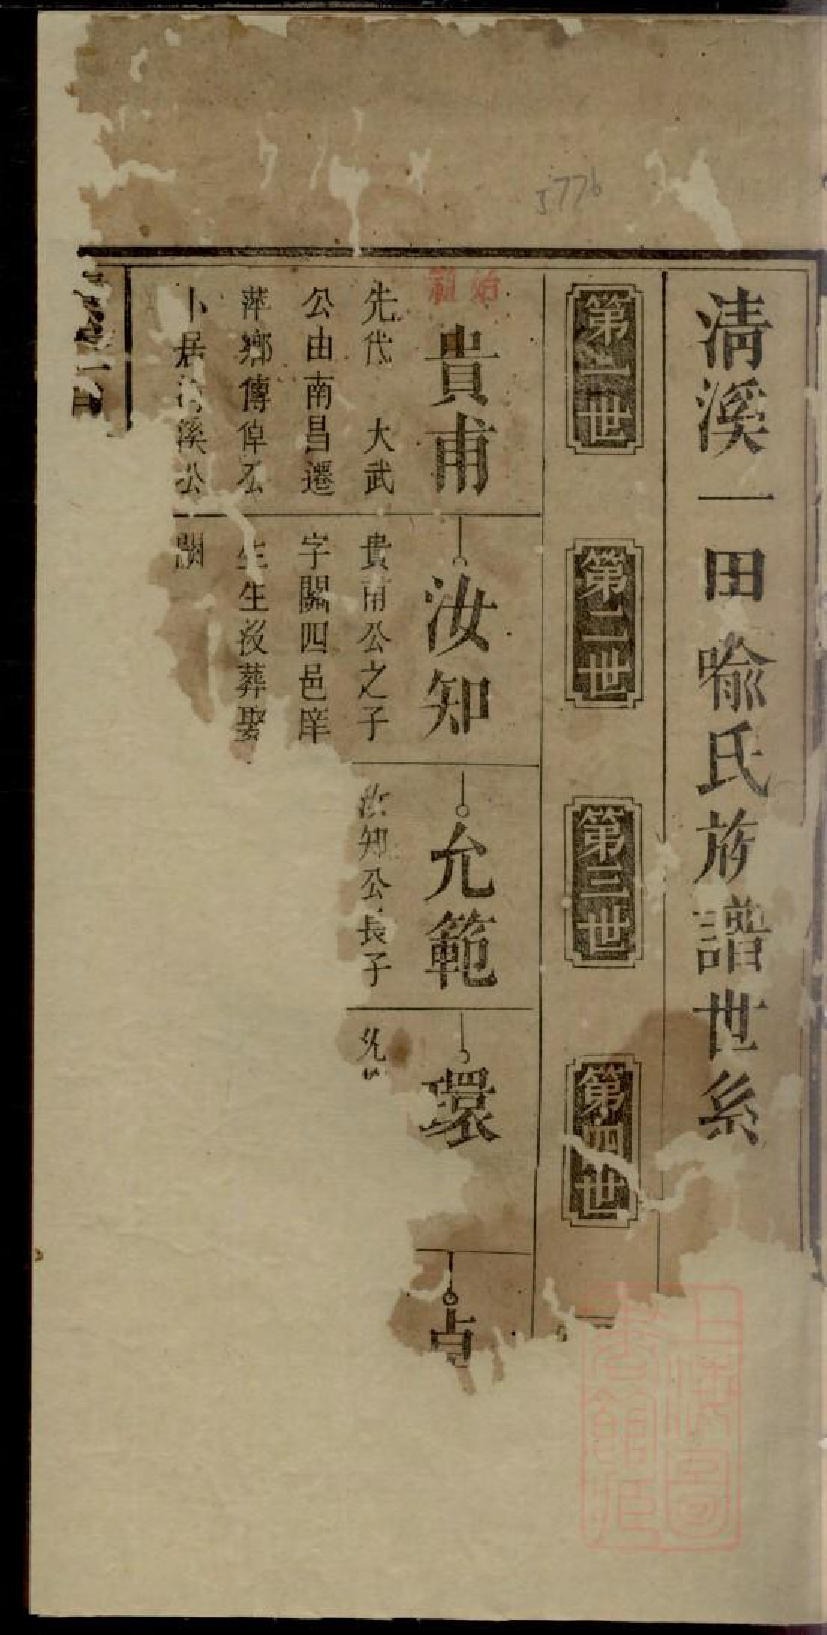 5776
清溪一田喻氏族譜世系
第一世
第二世
第三世
第四世
始祖
貴甫
先代 大武
公由南昌遷
萍鄉傳倬公
卜居清溪公
汝知
貴甫公之子
字闕四邑庠
生生沒葬娶
闕
允範
汝知公長子
環
允
上海圖
書館藏